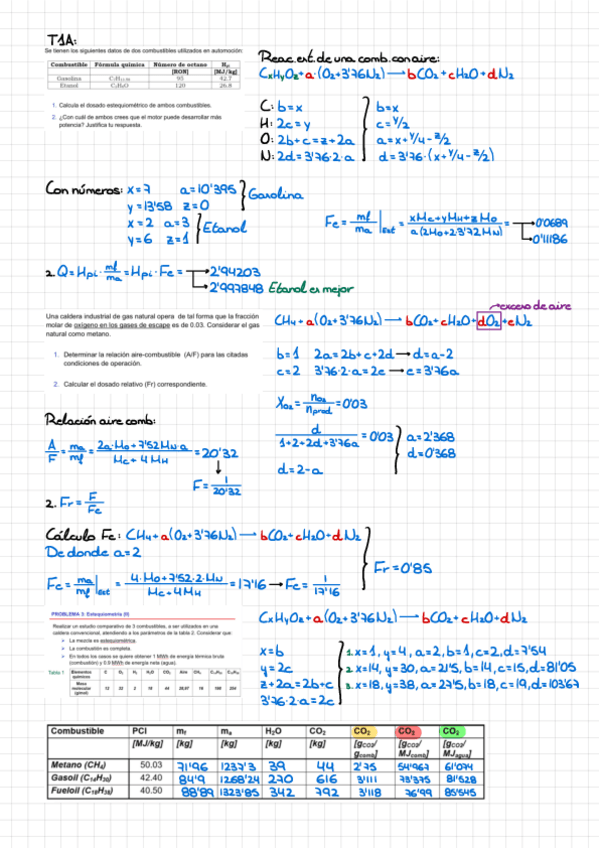 T1A:
Se tienen los siguientes datos de dos combustibles utilizados en automoción:
Combustible Fórmula química Número de octano [RON] Hpi [MJ/kg]
Gasolina 95 42.7
Etanol C2H6O 120 26.8
1. Calcula el dosado estequiométrico de ambos combustibles.
2. ¿Con cuál de ambos crees que el motor puede desarrollar más potencia? Justifica tu respuesta.
Reac. est. de una comb. con aire:
CxHyOz+a·(O2+3'76N2)→bCO2+cH2O+dN2
C: b=x
H: 2c=y
O: 2b+c=z+2a
N: 2d=3'76·2·a
b=x
c=y/2
a=x+y/4-z/2
d=3'76·(x+y/4-z/2)
Con números: x=7 a=10'395
y=13'58 z=0
Gasolina
x=2 a=3
y=6 z=1
Etanol
Fe=mf/ma|est=(xMc+yMH+zMo)/(a(2Mo+2·3'72MN))=→0'0689
→0'11186
2. Q=Hpi·mf/ma=Hpi·Fe=→2'94203
→2'997848 Etanol es mejor
Una caldera industrial de gas natural opera de tal forma que la fracción
molar de oxígeno en los gases de escape es de 0.03. Considerar el gas
natural como metano.
1. Determinar la relación aire-combustible (A/F) para las citadas
condiciones de operación.
2. Calcular el dosado relativo (Fr) correspondiente.
exceso de aire
CH4+a(O2+3'76N2)→bCO2+cH2O+dO2+eN2
b=1 2a=2b+c+2d→d=a-2
c=2 3'76·2·a=2e→e=3'76a
XO2=nO2/nprod=0'03
d/(1+2+2d+3'76a)=0'03
d=2-a
a=2'368
d=0'368
Relación aire comb:
A/F=ma/mf=(2a·Mo+7'52MN·a)/(Mc+4MH)=20'32
F=1/20'32
2. Fr=F/Fe
Cálculo Fe: CH4+a(O2+3'76N2)→bCO2+cH2O+dN2
De donde a=2
Fe=ma/mf|est=(4·Mo+7'52·2·MN)/(Mc+4MH)=17'16→Fe=1/17'16
Fr=0'85
PROBLEMA 3: Estequiometría (II)
Realizar un estudio comparativo de 3 combustibles, a ser utilizados en una
caldera convencional, atendiendo a los parámetros de la tabla 2. Considerar que:
La mezcla es estequiométrica.
La combustión es completa.
En todos los casos se quiere obtener 1 MWh de energía térmica bruta
(combustión) y 0.9 MWh de energía neta (agua).
Tabla 1
Elementos químicos C O2 H2 H2O CO2 Aire CH4 C14H30 C18H38
Masa molecular (g/mol) 12 32 2 18 44 28,97 16 198 254
CxHyOz+a(O2+3'76N2)→bCO2+cH2O+dN2
x=b
y=2c
z+2a=2b+c
3'76·2·a=2c
1. x=1, y=4, a=2, b=1, c=2, d=7'54
2. x=14, y=30, a=21'5, b=14, c=15, d=81'05
3. x=18, y=38, a=27'5, b=18, c=19, d=103'67
Combustible PCI mf ma H2O CO2 CO2 CO2 CO2
[MJ/kg] [kg] [kg] [kg] [kg] [gCO2/gcomb] [gCO2/MJcomb] [gCO2/MJagua]
Metano (CH4) 50.03 71'96 1237'3 39 44 2'75 54'967 61'074
Gasoil (C14H30) 42.40 84'9 1268'24 270 616 3'111 73'375 81'528
Fueloil (C18H38) 40.50 88'89 1323'85 342 792 3'118 76'99 85'545